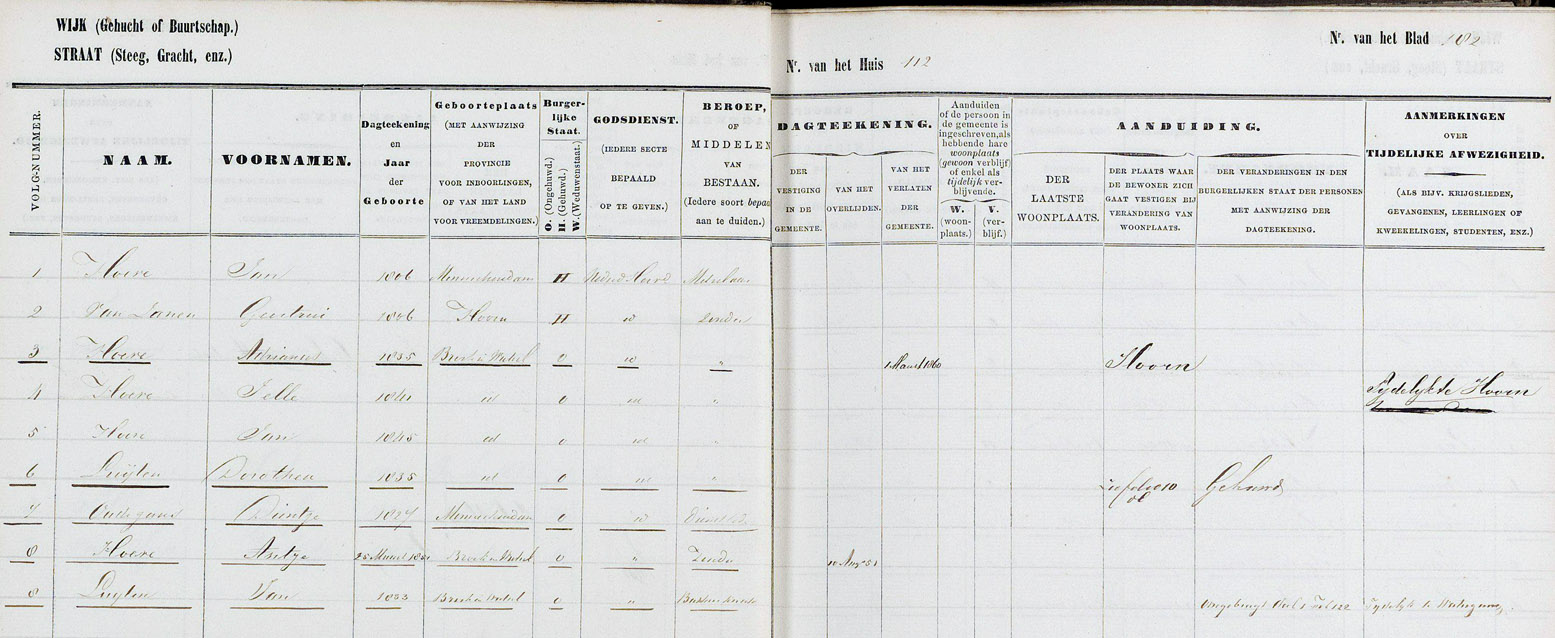 WIJK (Gehucht of Buurtschap.)
STRAAT (Steeg, Gracht, enz.)
Nr. van het Huis 112
Nr. van het Blad 182
VOLG-NUMMER.
NAAM.
VOORNAMEN.
Dagteekening
en
Jaar
der
Geboorte
Geboorteplaats
(MET AANWIJZING
DER
PROVINCIE
VOOR INBOORLINGEN,
OF VAN HET LAND
VOOR VREEMDELINGEN.)
Burger-
lijke
Staat.
O. (Ongehuwd.)
H. (Gehuwd.)
W. (Weduwenstaat.)
GODSDIENST.
(IEDERE SECTE
BEPAALD
OP TE GEVEN.)
BEROEP,
OF
MIDDELEN
VAN
BESTAAN.
(Iedere soort bepaa
aan te duiden.)
DAGTEEKENING.
DER
VESTIGING
IN DE
GEMEENTE.
VAN HET
OVERLIJDEN.
VAN HET
VERLATEN
DER
GEMEENTE.
Aanduiden
of de persoon in
de gemeente is
ingeschreven, als
hebbende hare
woonplaats
(gewoon verblijf)
of enkel als
tijdelijk ver-
blijvende.
W.
(woon-
plaats.)
V.
(ver-
blijf.)
AANDUIDING.
DER
LAATSTE
WOONPLAATS.
DER PLAATS WAAR
DE BEWONER ZICH
GAAT VESTIGEN BIJ
VERANDERING VAN
WOONPLAATS.
DER VERANDERINGEN IN DEN
BURGERLIJKEN STAAT DER PERSONEN
MET AANWIJZING DER
DAGTEEKENING.
AANMERKINGEN
OVER
TIJDELIJKE AFWEZIGHEID.
(ALS BIJV. KRIJGSLIEDEN,
GEVANGENEN, LEERLINGEN OF
KWEEKELINGEN, STUDENTEN, ENZ.)
1 Hoere Jan 1806 Monnickendam H Nederd Herv Metselaar
2 Van Zanen Geertrui 1806 Hoorn H id zonder
3 Hoere Adrianus 1835 Broek in Waterl O id " 1 Maart 1860 Hoorn
4 Hoere Jelle 1841 id O id " Tydelykte Hoorn
5 Hoere Jan 1845 id O id "
6 Luijten Dorothea 1835 id O id " Gehuwd
7 Dientje 1827 Monnickendam O id
8 Hoere Aaltje 25 Maart Broek in Waterl O " Zonder 10 Aug 51
8 Luijten Jan 1833 Broek in Waterl O "